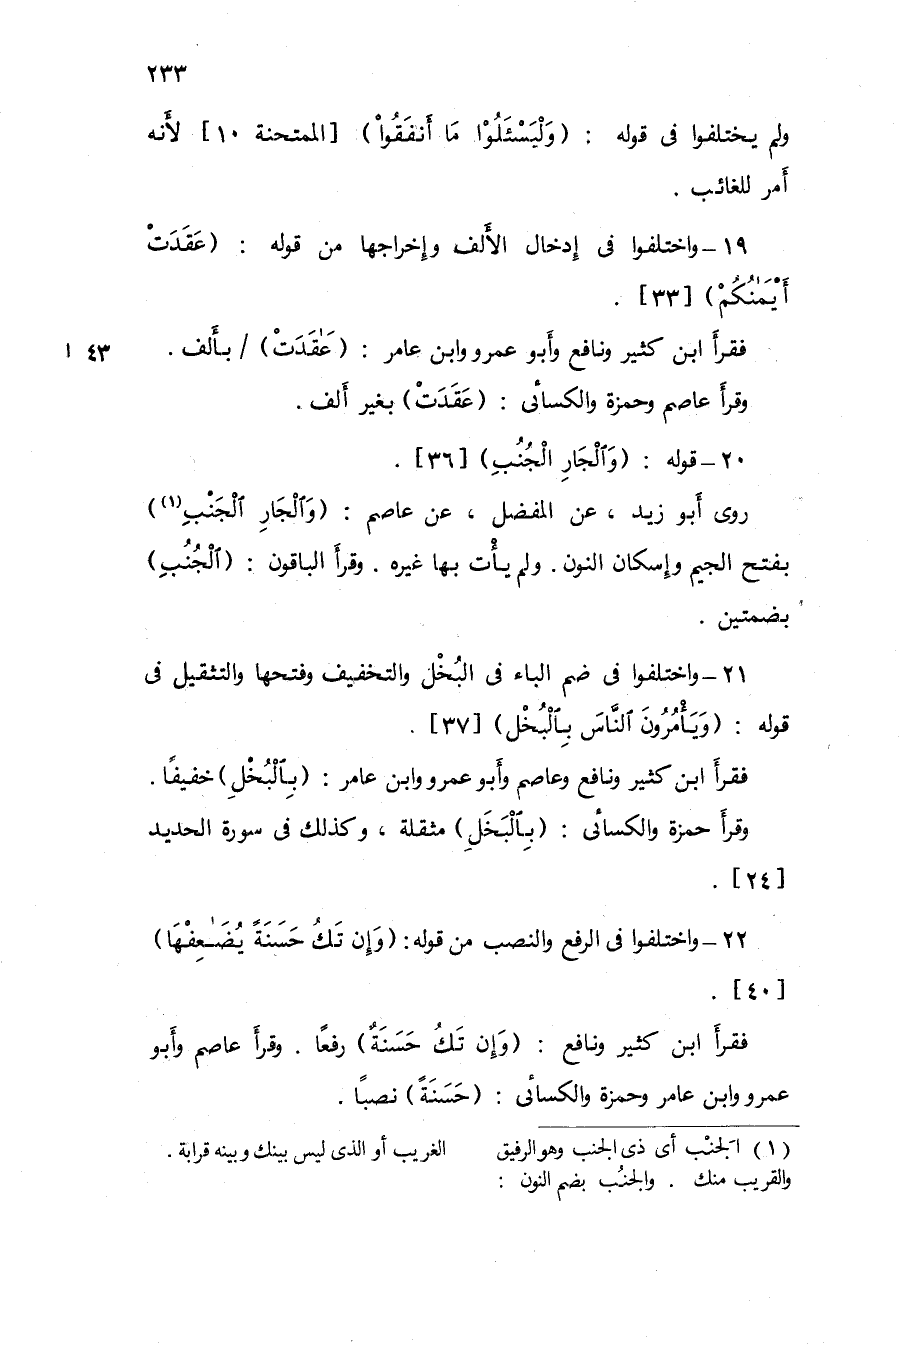 ٢٣٣
ولم يختلفوا فى قوله : (وَلْيَسْئَلُوْا مَا أَنفَقُواْ) [الممتحنة ١٠] لأَنه
أَمر للغائب .
١٩ــ واختلفوا فى إدخال الأَلف وإخراجها من قوله : (عَقَدَتْ
أَيْمَٰنُكُمْ) [٣٣] .
فقرأَ ابن كثير ونافع وأَبو عمرو وابن عامر : (عَٰقَدَتْ) / بأَلف . ٤٣ ا
وقرأَ عاصم وحمزة والكسائى : (عَقَدَتْ) بغير أَلف .
٢٠ــ قوله : (وَٱلْجَارِ الْجُنُبِ) [٣٦] .
روى أَبو زيد ، عن المفضل ، عن عاصم : (وَٱلْجَارِ ٱلْجَنْبِ(١))
بفتح الجيم وإسكان النون . ولم يأْت بها غيره . وقرأَ الباقون : (ٱلْجُنُبِ)
بضمتين .
٢١ــ واختلفوا فى ضم الباء فى البُخْل والتخفيف وفتحها والتثقيل فى
قوله : (وَيَأْمُرُونَ ٱلنَّاسَ بِٱلْبُخْلِ) [٣٧] .
فقرأَ ابن كثير ونافع وعاصم وأَبو عمرو وابن عامر : (بِٱلْبُخْلِ) خفيفًا .
وقرأَ حمزة والكسائى : (بِٱلْبَخَلِ) مثقلة ، وكذلك فى سورة الحديد
[٢٤] .
٢٢ــ واختلفوا فى الرفع والنصب من قوله : (وَإِن تَكُ حَسَنَةً يُضَٰعِفْهَا)
[٤٠] .
فقرأَ ابن كثير ونافع : (وَإِن تَكُ حَسَنَةٌ) رفعًا . وقرأَ عاصم وأَبو
عمرو وابن عامر وحمزة والكسائى : (حَسَنَةً) نصبًا .
(١) الجَنْب أى ذى الجنب وهو الرفيق
والقريب منك . والجنُب بضم النون :
الغريب أو الذى ليس بينك وبينه قرابة .